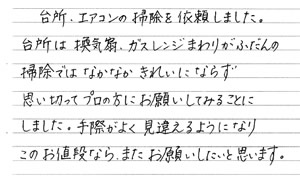 台所、エアコンの掃除を依頼しました。
台所は換気扇、ガスレンジまわりがふだんの
掃除ではなかなかきれいにならず
思い切ってプロの方にお願いしてみることに
しました。手際がよく見違えるようになり
このお値段なら、またお願いしたいと思います。